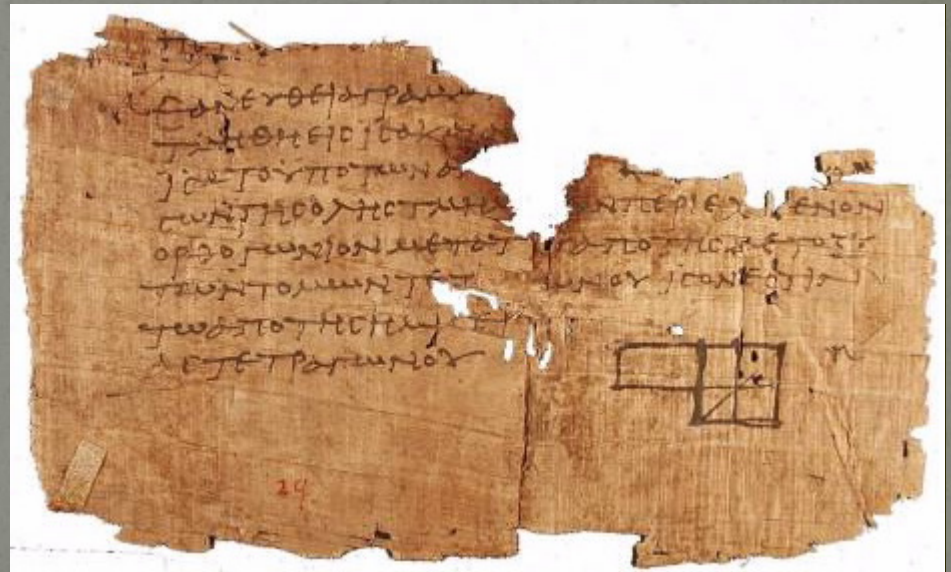 ΕΑΝ ΕΥΘΕΙΑ ΓΡΑΜΜ
ΤΜΗΘΗ ΕΙϹ ΙϹΑ Κ
ΙϹΑ ΤΟ ΥΠΟ ΤΩΝ ΑΝ
ϹΩΝ ΤΗϹ ΟΛΗϹ ΤΜΗ ΩΝ ΠΕΡΙΕΧ ΕΝΟΝ
ΟΡΘΟΓΩΝΙΟΝ ΜΕΤΑ ΤΟΥ ΑΠΟ ΤΗϹ ΜΕΤΟΞΥ
ΤΩΝ ΤΟΜΩΝ ΤΕΤ ΩΝΟΥ ΙϹΟΝ ΕϹΤΙΝ
ΤΩ ΑΠΟ ΤΗϹ ΗΜΙϹΕΙ
ΑϹ ΤΕΤΡΑΓΩΝΟΥ
29